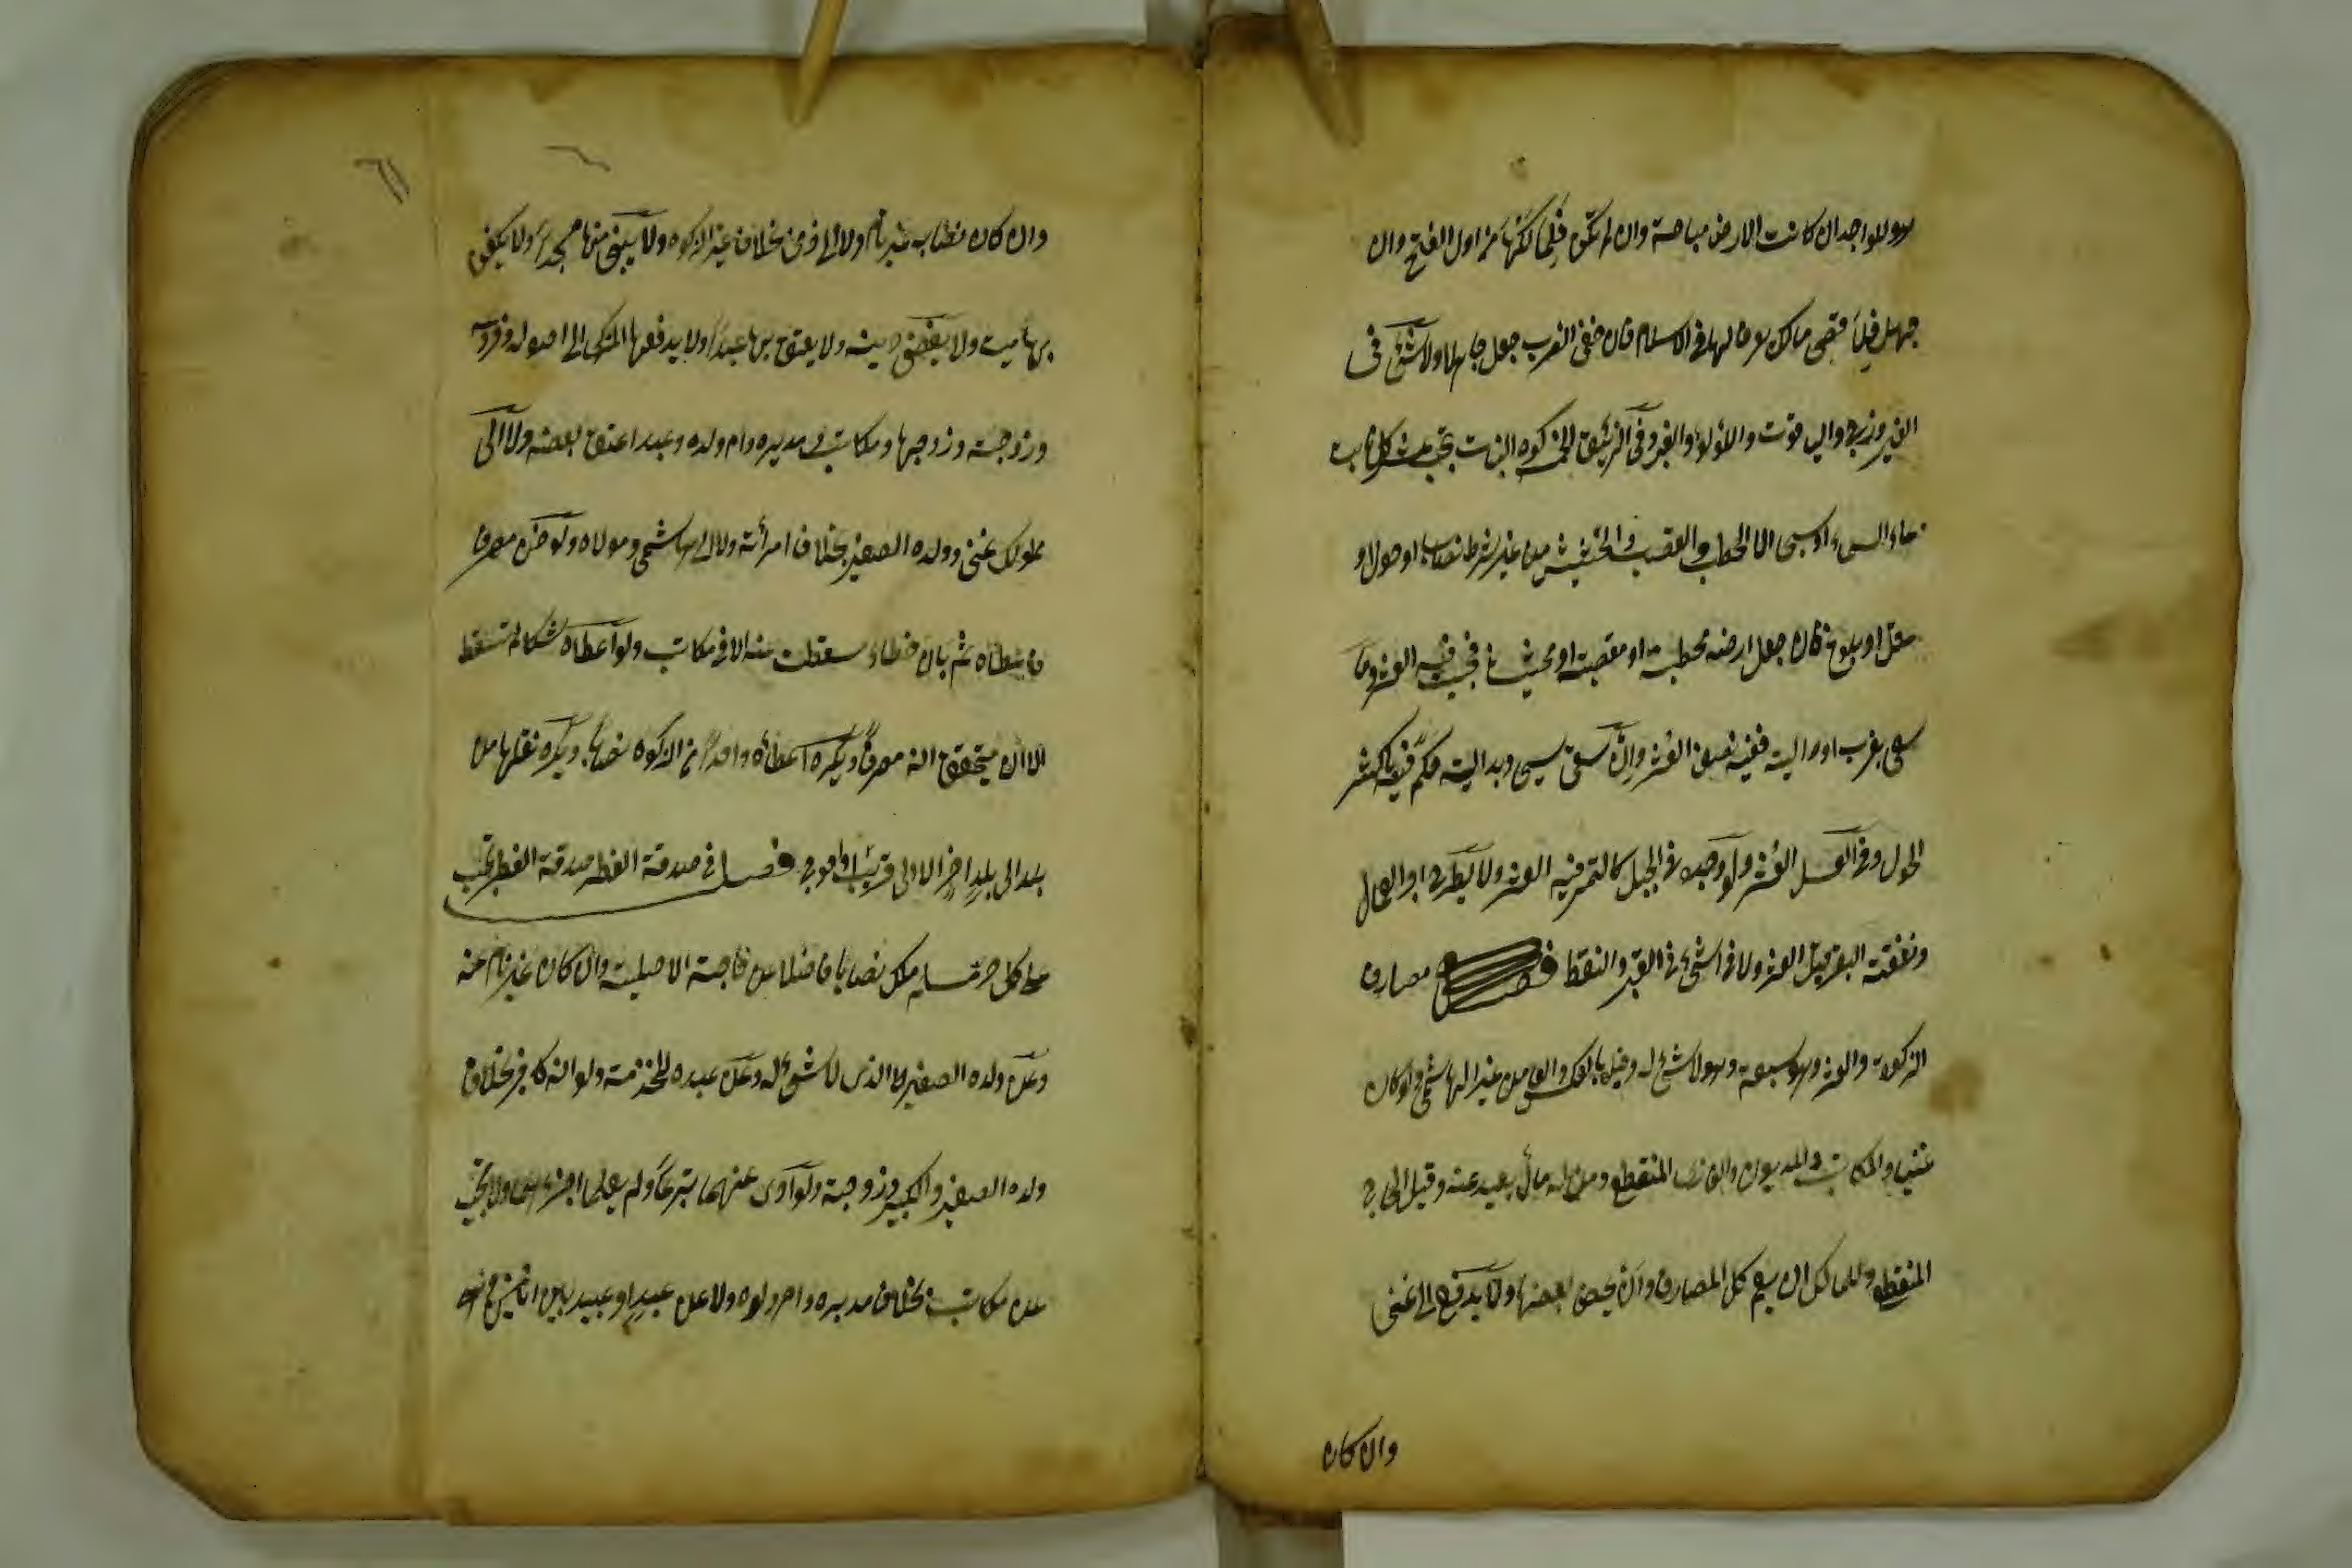 هو للواجد ان كانت الارض مباحة وان لم تكن فلمالكها من اول الفتح وان
جهل فلاقصى مالك يعرف لها فى الاسلام فان خفى الضرب جعل جاهليا ولا شئ فى
الفيروزج والياقوت واللؤلؤ والعنبر وفى الزئبق الخمس
ماء السماء او سيحى الا الحطب والقصب والحشيش من غير شرط نصاب او حول او
عقل او بلوغ فان جعل ارضه محطبة او مقصبة او محشا فيجب فيه العشر وما
سقى بغرب او دالية ففيه نصف العشر وان سقى سيحى ودالية حكم فيه باكثر
الحول وفى العسل العشر ولو وجده فى الجبل كالثمر ففيه العشر ولا يطرح اجر العمال
ونفقة البقر قبل العشر ولا شئ فى القير والنفط فصل مصارف
الزكوة والعشر وهو سبعة وهو لا شئ له وقيل بالعكس والعامل غير الهاشمى ولو كان
غنيا والمكاتب والمديون والغازى المنقطع ومن له مال بعيد عنه وقيل الحاج
المنقطع وللمالك ان يعم كل المصارف وان يخص بعضها ولا يدفع الى غنى
وان كان
وان كان نصاب غير نام ولا الى ذمى بخلاف غير الزكوة ولا يبنى منها مسجد ولا يكفن
بها ميت ولا يقضى دينه ولا يعتق بها عبد ولا يدفعها المزكى الى اصوله وفروعه
وزوجته وزوجها ومكاتبه ومدبره وام ولده وعبد اعتق بعضه ولا الى
مملوك غنى وولده الصغير بخلاف امرأته ولا الى هاشمى ومولاه ولو ظنه مصرفا
فاعطاه ثم بان خطاؤه سقطت عنه الا فى مكاتبه ولو اعطاه شكا لم تسقط
الا ان يتحقق انه مصرفا ويكره اعطاؤه واحدا من الزكوة نصابا ويكره نقلها من
بلد الى بلد اخر الا الى قريب او احوج فصل فى صدقة الفطر صدقة الفطر تجب
على كل حر مسلم ملك نصابا فاضلا عن حاجته الاصلية وان كان غير نام عنه
وعن ولده الصغير الذى لا شئ له وعن عبده للخدمة ولو انه كافر بخلاف
ولده الصغير والكبير وزوجته ولو ادى عنهما تبرعا ولم يعلما اجزأهما ولا يجب
عن مكاتبه بخلاف مدبره وام ولده ولا عن عبد او عبيد بين اثنين